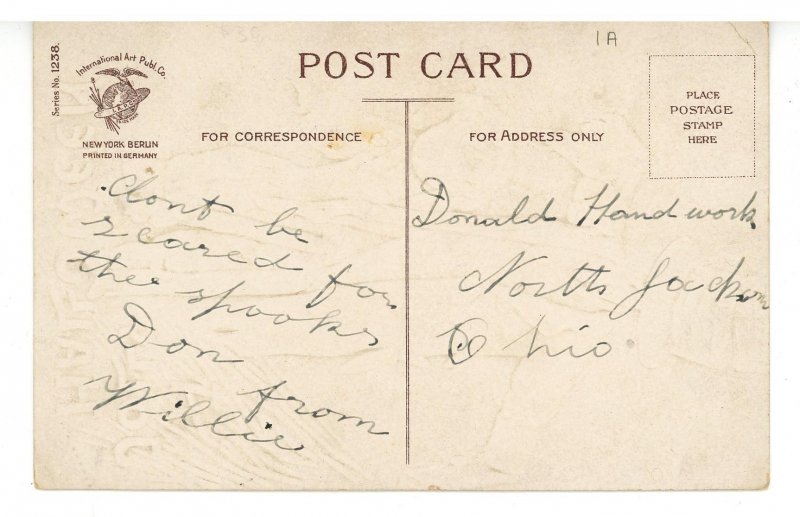 1A
Series No. 1238.
International Art Publ. Co.
NEW YORK BERLIN
PRINTED IN GERMANY
POST CARD
FOR CORRESPONDENCE
FOR ADDRESS ONLY
PLACE
POSTAGE
STAMP
HERE
dont be
scared for
the spooks
Don
from
Willie
Donald Handwork
North Jackson
Ohio